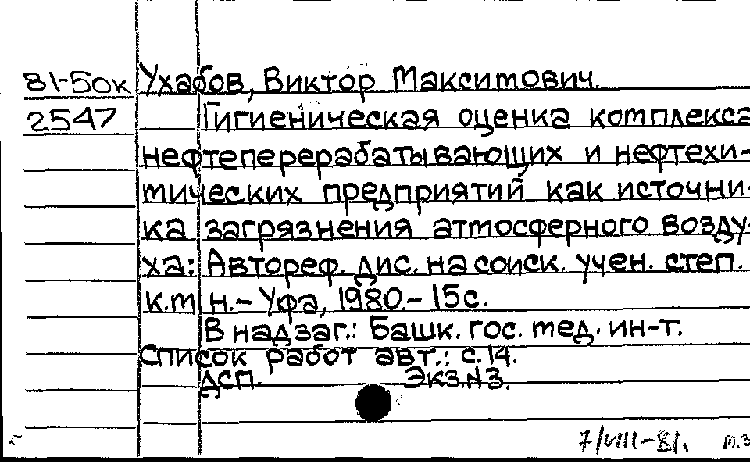 81-5ок Ухабов, Виктор Максимович.
2547 Гигиеническая оценка комплекса
нефтеперерабатывающих и нефтехи-
мических предприятий как источни-
ка загрязнения атмосферного возду-
ха: Автореф. дис. на соиск. учен. степ.
к.м.н. – Уфа, 1980. – 15с.
В надзаг.: Башк. гос. мед. ин-т.
Список работ авт.: с. 14.
ДСП. Экз.N3.
7/VIII-81.